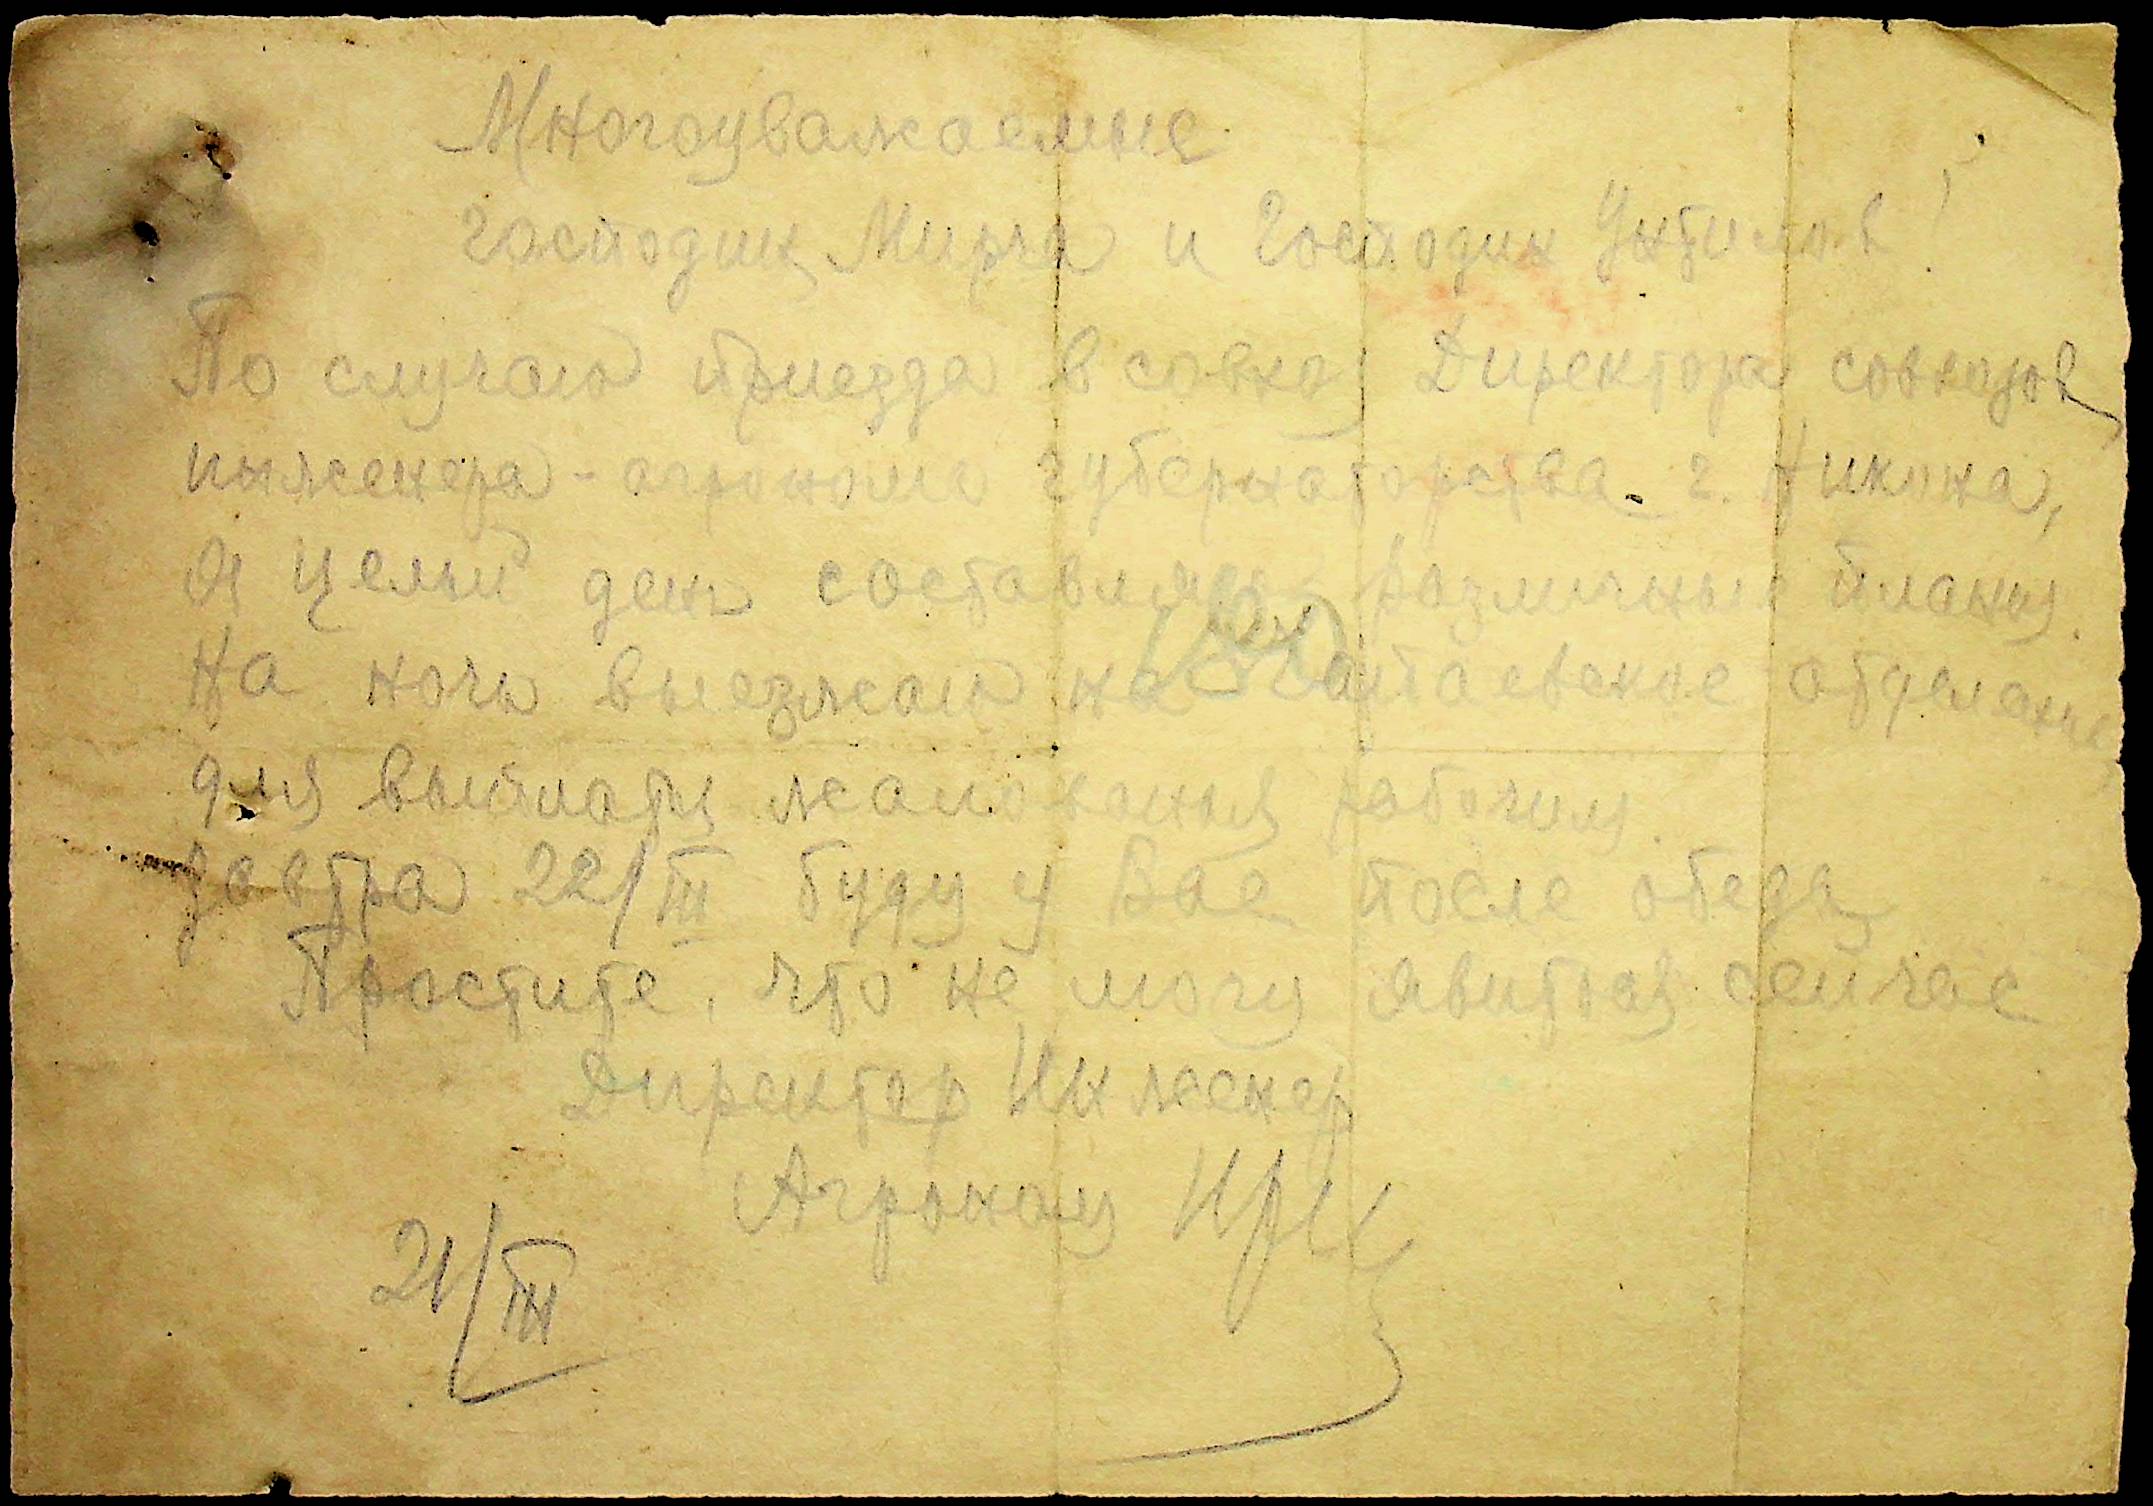 Многоуважаемые
господин Мирча и Господин Унтилов!
По случаю приезда в совхоз Директора совхозов,
инженера-агронома губернаторства г. Никона,
я целый день составляю различные планы.
На ночь выезжаю на отделение
для выплаты жалования рабочим.
Завтра 22/III буду у Вас после обеда
Простите, что не могу явиться сейчас
Директор Инженер
Агроном
21/III